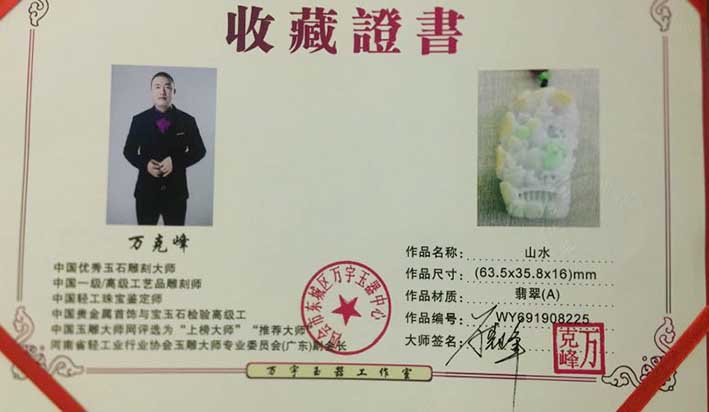 收藏證書
万克峰
中国优秀玉石雕刻大师
中国一级/高级工艺品雕刻师
中国轻工珠宝鉴定师
中国贵金属首饰与宝玉石检验高级工
中国玉雕大师网评选为“上榜大师”“推荐大师”
河南省轻工业行业协会玉雕大师专业委员会(广东)副会长
市东城区万宇玉器中心
作品名称: 山水
作品尺寸: (63.5x35.8x16)mm
作品材质: 翡翠(A)
作品编号: WY691908225
大师签名:
万克峰
万宇玉器工作室